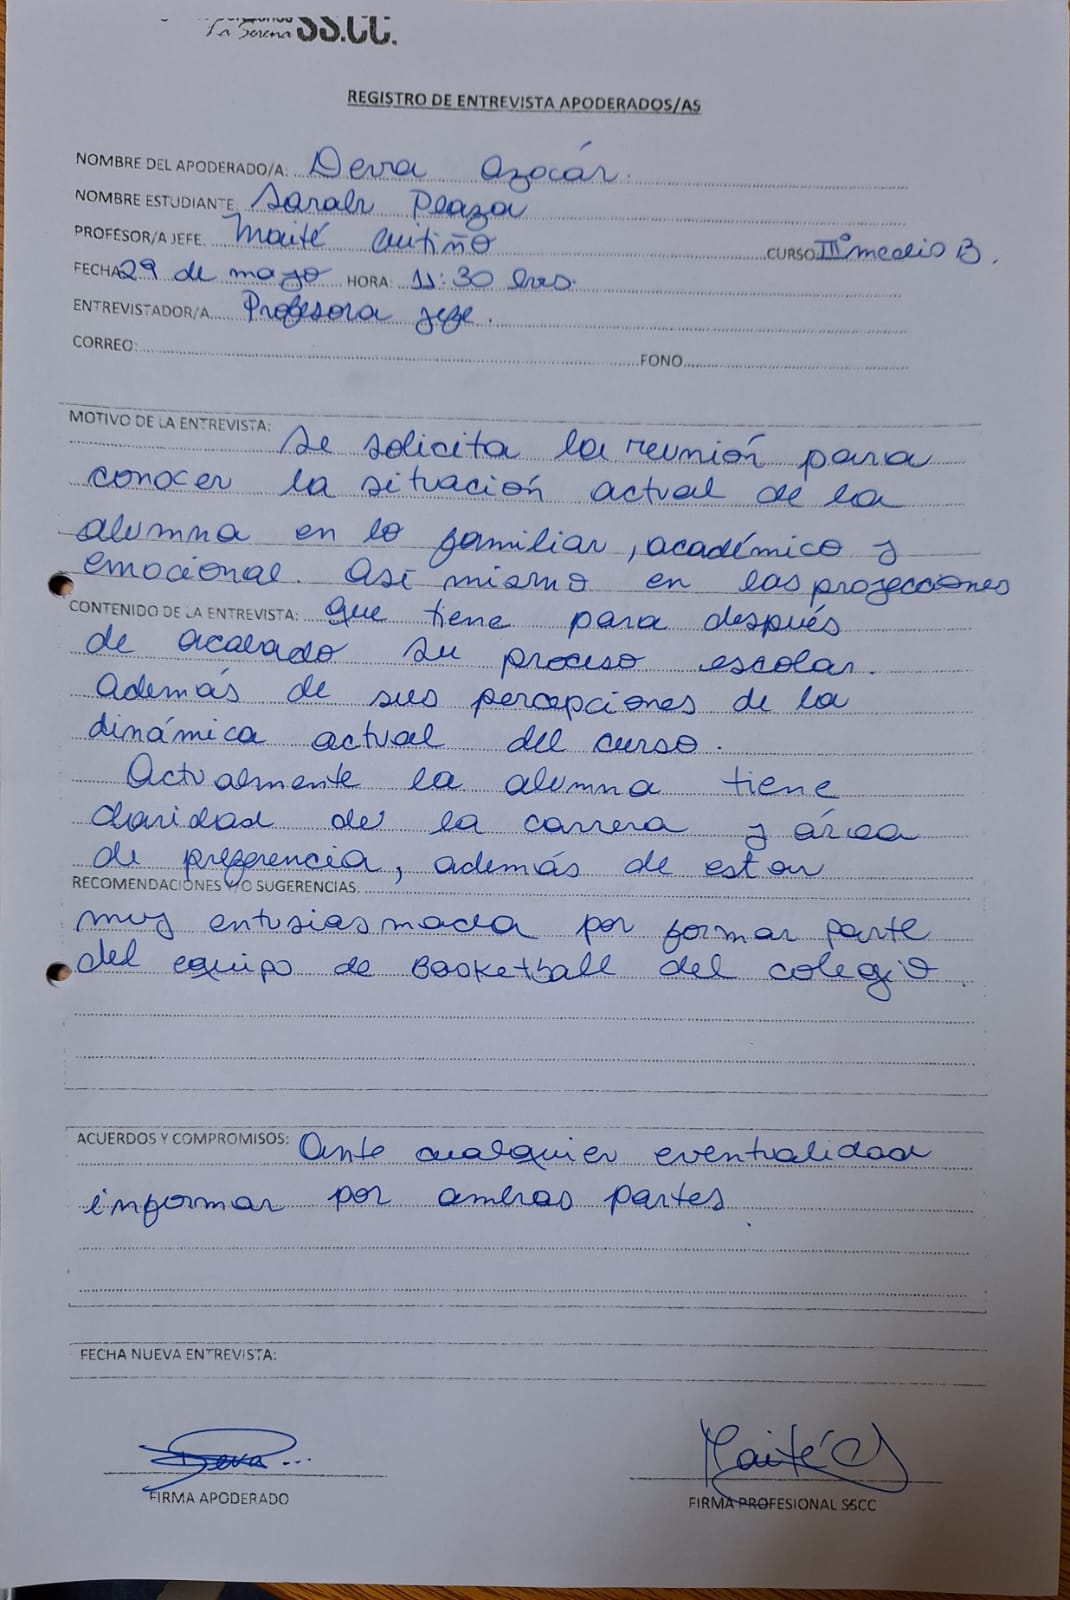 La Serena SS.CC.
REGISTRO DE ENTREVISTA APODERADOS/AS
NOMBRE DEL APODERADO/A: Deva Azócar.
NOMBRE ESTUDIANTE: Sarah Plaza
PROFESOR/A JEFE: Maité Autiño CURSO III° medio B.
FECHA 29 de mayo HORA: 11:30 hrs.
ENTREVISTADOR/A Profesora jefe.
CORREO: FONO
MOTIVO DE LA ENTREVISTA: Se solicita la reunión para
conocer la situación actual de la
alumna en lo familiar, académico y
emocional. Así mismo en las proyecciones
CONTENIDO DE LA ENTREVISTA: que tiene para después
de acabado su proceso escolar.
Además de sus percepciones de la
dinámica actual del curso.
Actualmente la alumna tiene
claridad de la carrera y área
de preferencia, además de estar
RECOMENDACIONES Y/O SUGERENCIAS:
muy entusiasmada por formar parte
del equipo de Basketball del colegio.
ACUERDOS Y COMPROMISOS: Ante cualquier eventualidad
informar por ambas partes.
FECHA NUEVA ENTREVISTA:
Deva... Maité
FIRMA APODERADO FIRMA PROFESIONAL SSCC